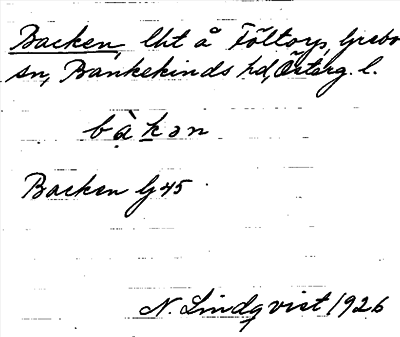 Backen, lht å Föltorp, Grebo
sn, Bankekinds hd, Österg. l.
bạ̀kən
Backen Gj 45
N. Lindqvist 1926